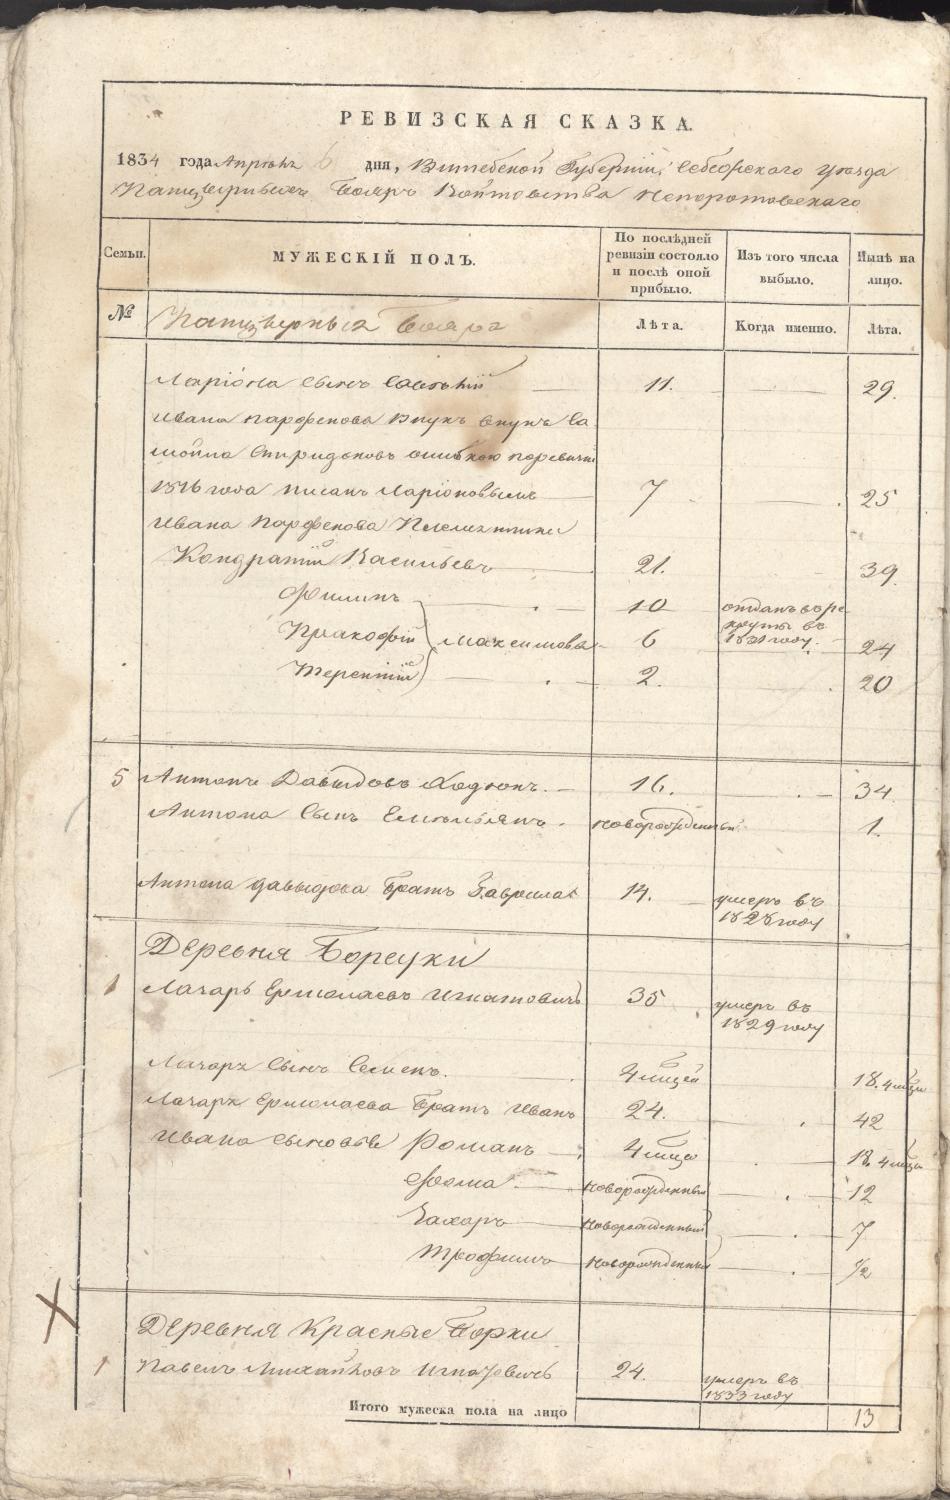 РЕВИЗСКАЯ СКАЗКА.
1834 года Апреля 6 дня, Витебской Губернии, Себежского уезда
Панцырныхъ Бояръ Войтовства Непоротовскаго
Семьи. МУЖЕСКІЙ ПОЛЪ. По послѣдней ревизіи состояло и послѣ оной прибыло. Изъ того числа выбыло. Нынѣ на лицо.
№ Панцырныхъ Бояръ Лѣта. Когда именно. Лѣта.
Ларіона сынъ 11. 29.
Ивана Парфенова внукъ внукъ Са
мойла Спиридоновъ ошибкою поревизіи
1816 года писанъ Ларіоновымъ 7 25
Ивана Парфенова Племянники
Кондратій Васильевъ 21. 39.
Филипъ 10 отданъ въ ре
круты въ
1831 году.
Пракофій Максимовы 6 24
Терентій 2. 20
5 Антонъ Давыдовъ Ходюкъ. 16. 34
Антона Сынъ Емельянъ новорожденный 1.
Антона Давыдова Братъ Гаврила 14. умеръ въ
1828 году
Деревня Бореуки
1 Лазарь Ермолаевъ Игнатовичъ 35 умеръ въ
1829 году
Лазаря Сынъ Семенъ. 4 мцей 18. 4 мцы
Лазаря Ермолаева Братъ Иванъ 24. 42
Ивана Сыновья Романъ 4 мцы 18. 4 мцы
Фома новорожденный 12
Захаръ новорожденный 7
Трофимъ новорожденный 1/2
Деревня Красные Борки
1 Павелъ Михайловъ Игнатовичъ 24. умеръ въ
1833 году
Итого мужеска пола на лицо 13